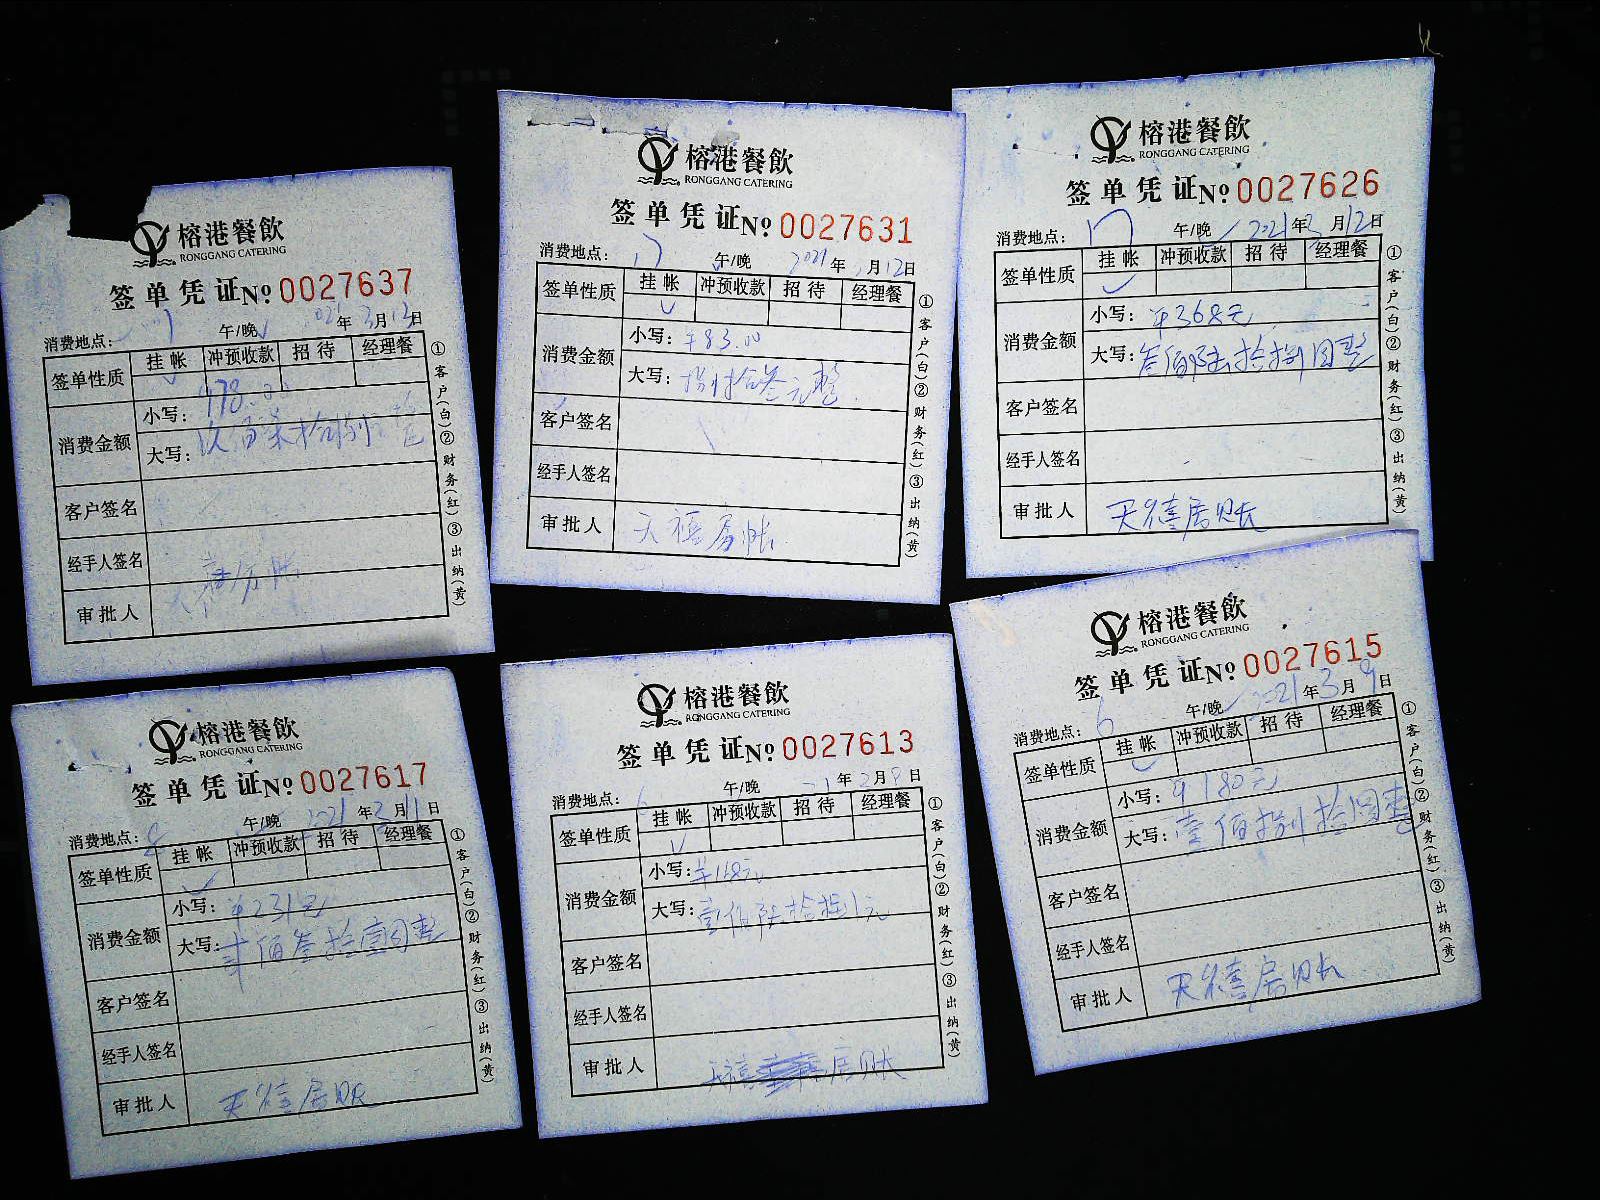 榕港餐飲
RONGGANG CATERING
签单凭证№0027637
消费地点: 午/晚 年3月13日
签单性质 挂帐 冲预收款 招待 经理餐
消费金额 小写: 978.00
大写: 玖佰柒拾捌元整
客户签名
经手人签名
审批人
天禧房帐
①客户(白)②财务(红)③出纳(黄)
榕港餐飲
RONGGANG CATERING
签单凭证№0027631
消费地点: 17 午/晚 2021年 月12日
签单性质 挂帐 冲预收款 招待 经理餐
消费金额 小写: ¥83.00
大写: 捌拾叁元整
客户签名
经手人签名
审批人 天禧房帐
①客户(白)②财务(红)③出纳(黄)
榕港餐飲
RONGGANG CATERING
签单凭证№0027626
消费地点: 17 午/晚 2021年3月12日
签单性质 挂帐 冲预收款 招待 经理餐
消费金额 小写: ¥368元
大写: 叁佰陆拾捌圆整
客户签名
经手人签名
审批人 天禧房账
①客户(白)②财务(红)③出纳(黄)
榕港餐飲
RONGGANG CATERING
签单凭证№0027617
消费地点: 8 午/晚 2021年3月11日
签单性质 挂帐 冲预收款 招待 经理餐
消费金额 小写: ¥231元
大写: 贰佰叁拾壹圆整
客户签名
经手人签名
审批人 天禧房账
①客户(白)②财务(红)③出纳(黄)
榕港餐飲
RONGGANG CATERING
签单凭证№0027613
消费地点: 6 午/晚 21年2月8日
签单性质 挂帐 冲预收款 招待 经理餐
消费金额 小写: ¥168元
大写: 壹佰陆拾捌元
客户签名
经手人签名
审批人 天禧房账
①客户(白)②财务(红)③出纳(黄)
榕港餐飲
RONGGANG CATERING
签单凭证№0027615
消费地点: 6 午/晚 2021年3月9日
签单性质 挂帐 冲预收款 招待 经理餐
消费金额 小写: ¥180元
大写: 壹佰捌拾圆整
客户签名
经手人签名
审批人 天禧房账
①客户(白)②财务(红)③出纳(黄)